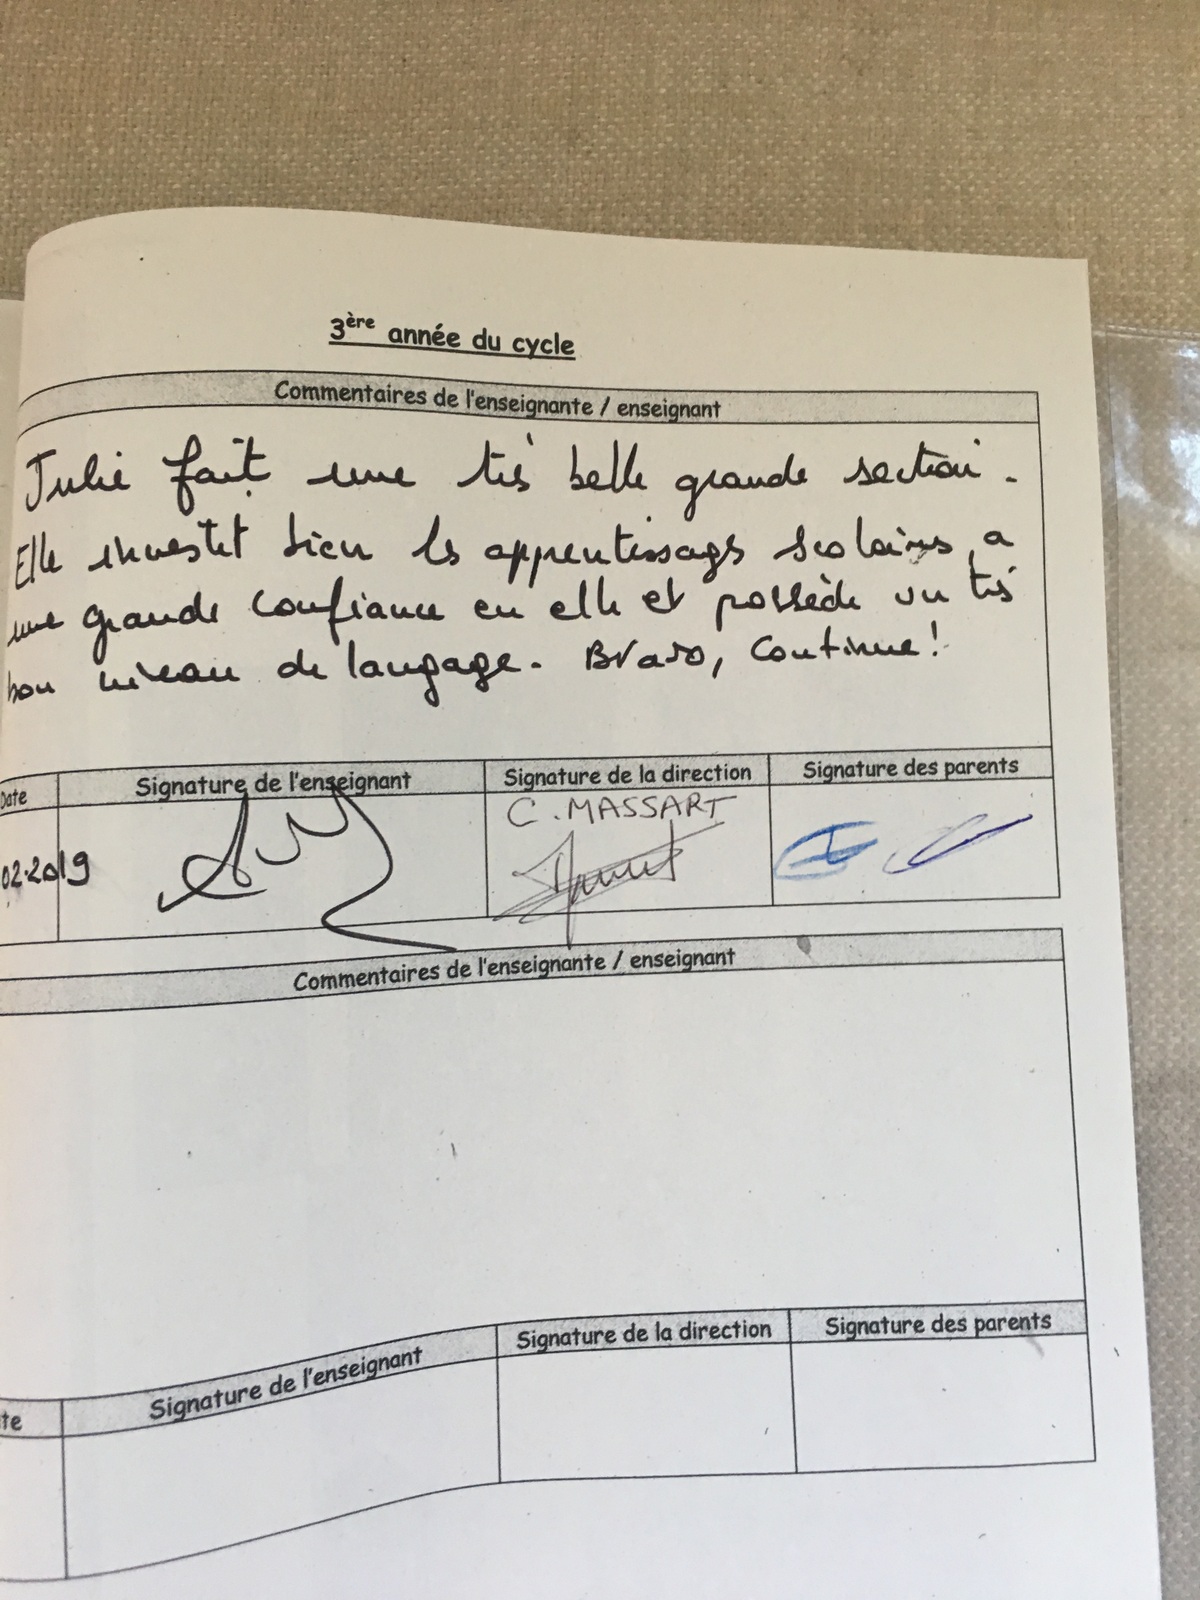 3ère année du cycle
Commentaires de l'enseignante / enseignant
Julie fait une très belle grande section.
Elle investit bien les apprentissages scolaires, a
une grande confiance en elle et possède un très
bon niveau de langage. Bravo, continue!
Date Signature de l'enseignant Signature de la direction Signature des parents
02.2019 C. MASSART
Commentaires de l'enseignante / enseignant
te Signature de l'enseignant Signature de la direction Signature des parents